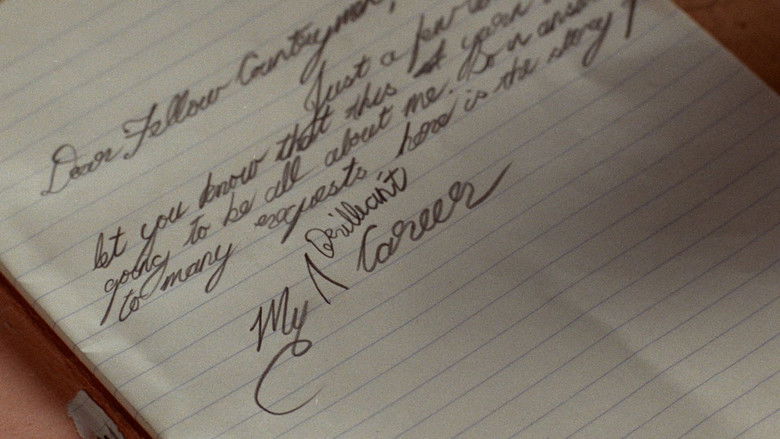 Dear Fellow Countrymen,
Just a few
let you know that this yarn
going to be all about me. So in
to many requests, here is the story
Brilliant
My ⋀ Career